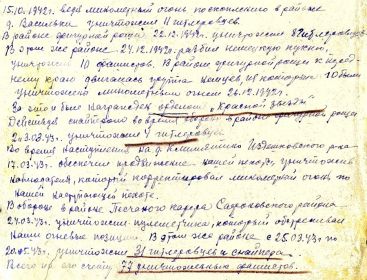 15.10.1942г. ведя миномётный огонь по скоплению в районе
д. Васильки уничтожил 11 гитлеровцев.
В районе фигурной рощи 22.12.1942г. уничтожено 8 гитлеровцев
В этом же районе 24.12.1942г. разбил немецкую кухню,
уничтожен 10 фашистов. В районе фигурной рощи к перед-
нему краю двигалась группа немцев, из которых 10 были
уничтожены миномётным огнём 26.12.1942г.
За это и был награждён орденом "Красной звезды"
Действуя снайпером во время обороны в районе фигурной рощи
2-3.03.43г. уничтожил 4 гитлеровцев.
Во время наступления на д. Издешковского р-на
17.03.43г. обеспечил продвижение нашей пехоты, уничтожив
наблюдателя, который корректировал миномётный огонь по
нашей наступающей пехоте.
В обороне в районе Песчаного карьера Сафоновского района
24.03.43г. уничтожил пулемётчика, который обстреливал
наши огневые позиции. В этом же районе с 25.03.43г. по
20.05.43г. уничтожил 31 гитлеровцев и снайпера.
Всего на его счету 77 уничтоженных фашистов.